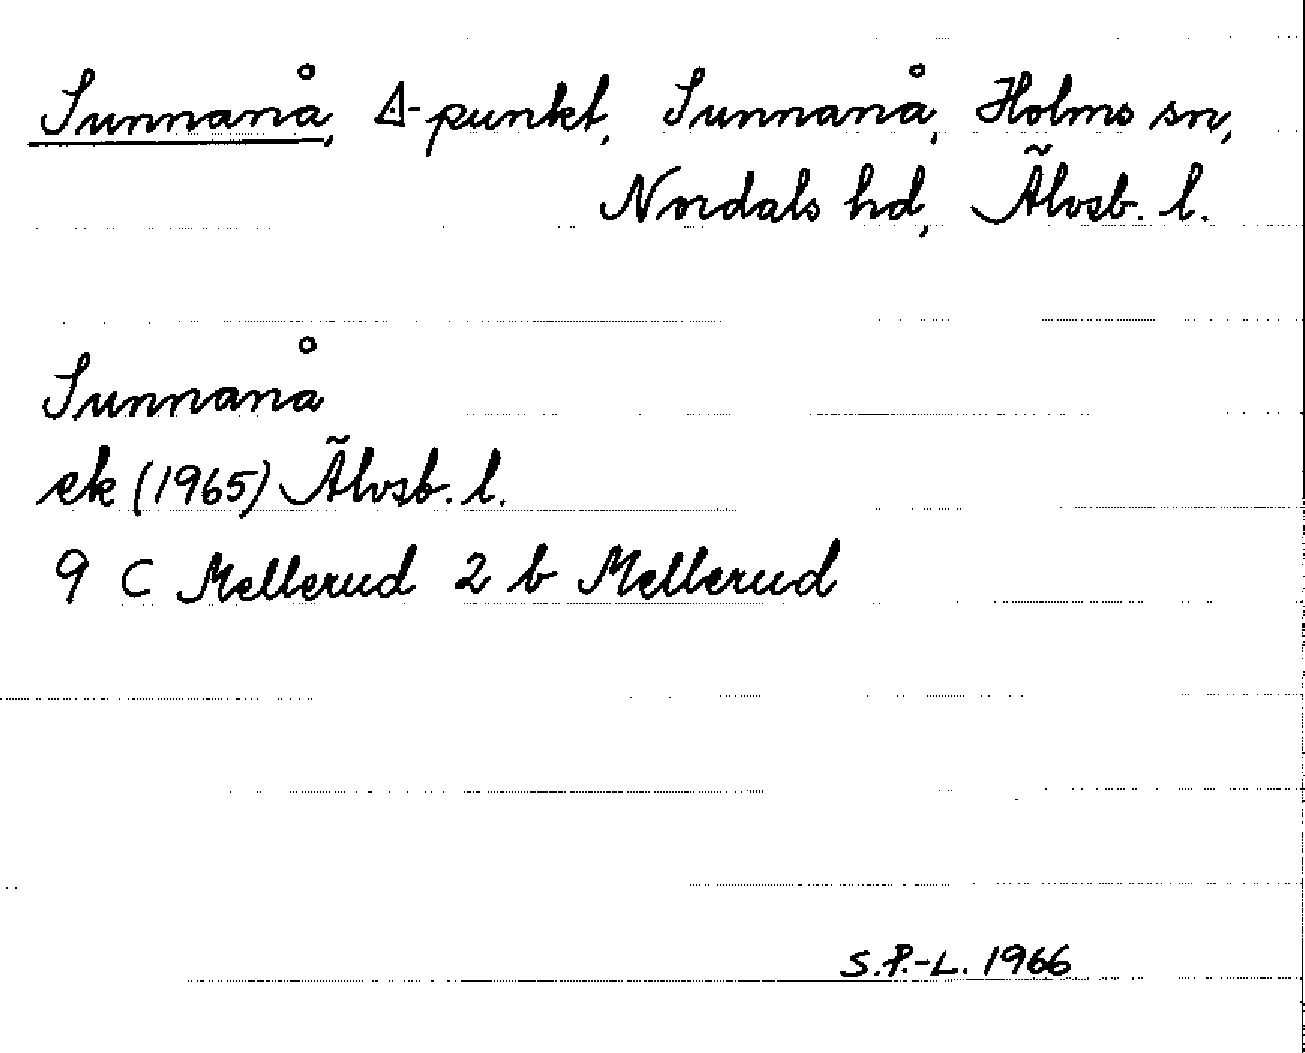 Sunnanå, Δ-punkt, Sunnanå, Holms sn,
Nordals hd, Älvsb. l.
Sunnanå
ek (1965) Älvsb. l.
9 C Mellerud 2 b Mellerud
S.P.-L. 1966